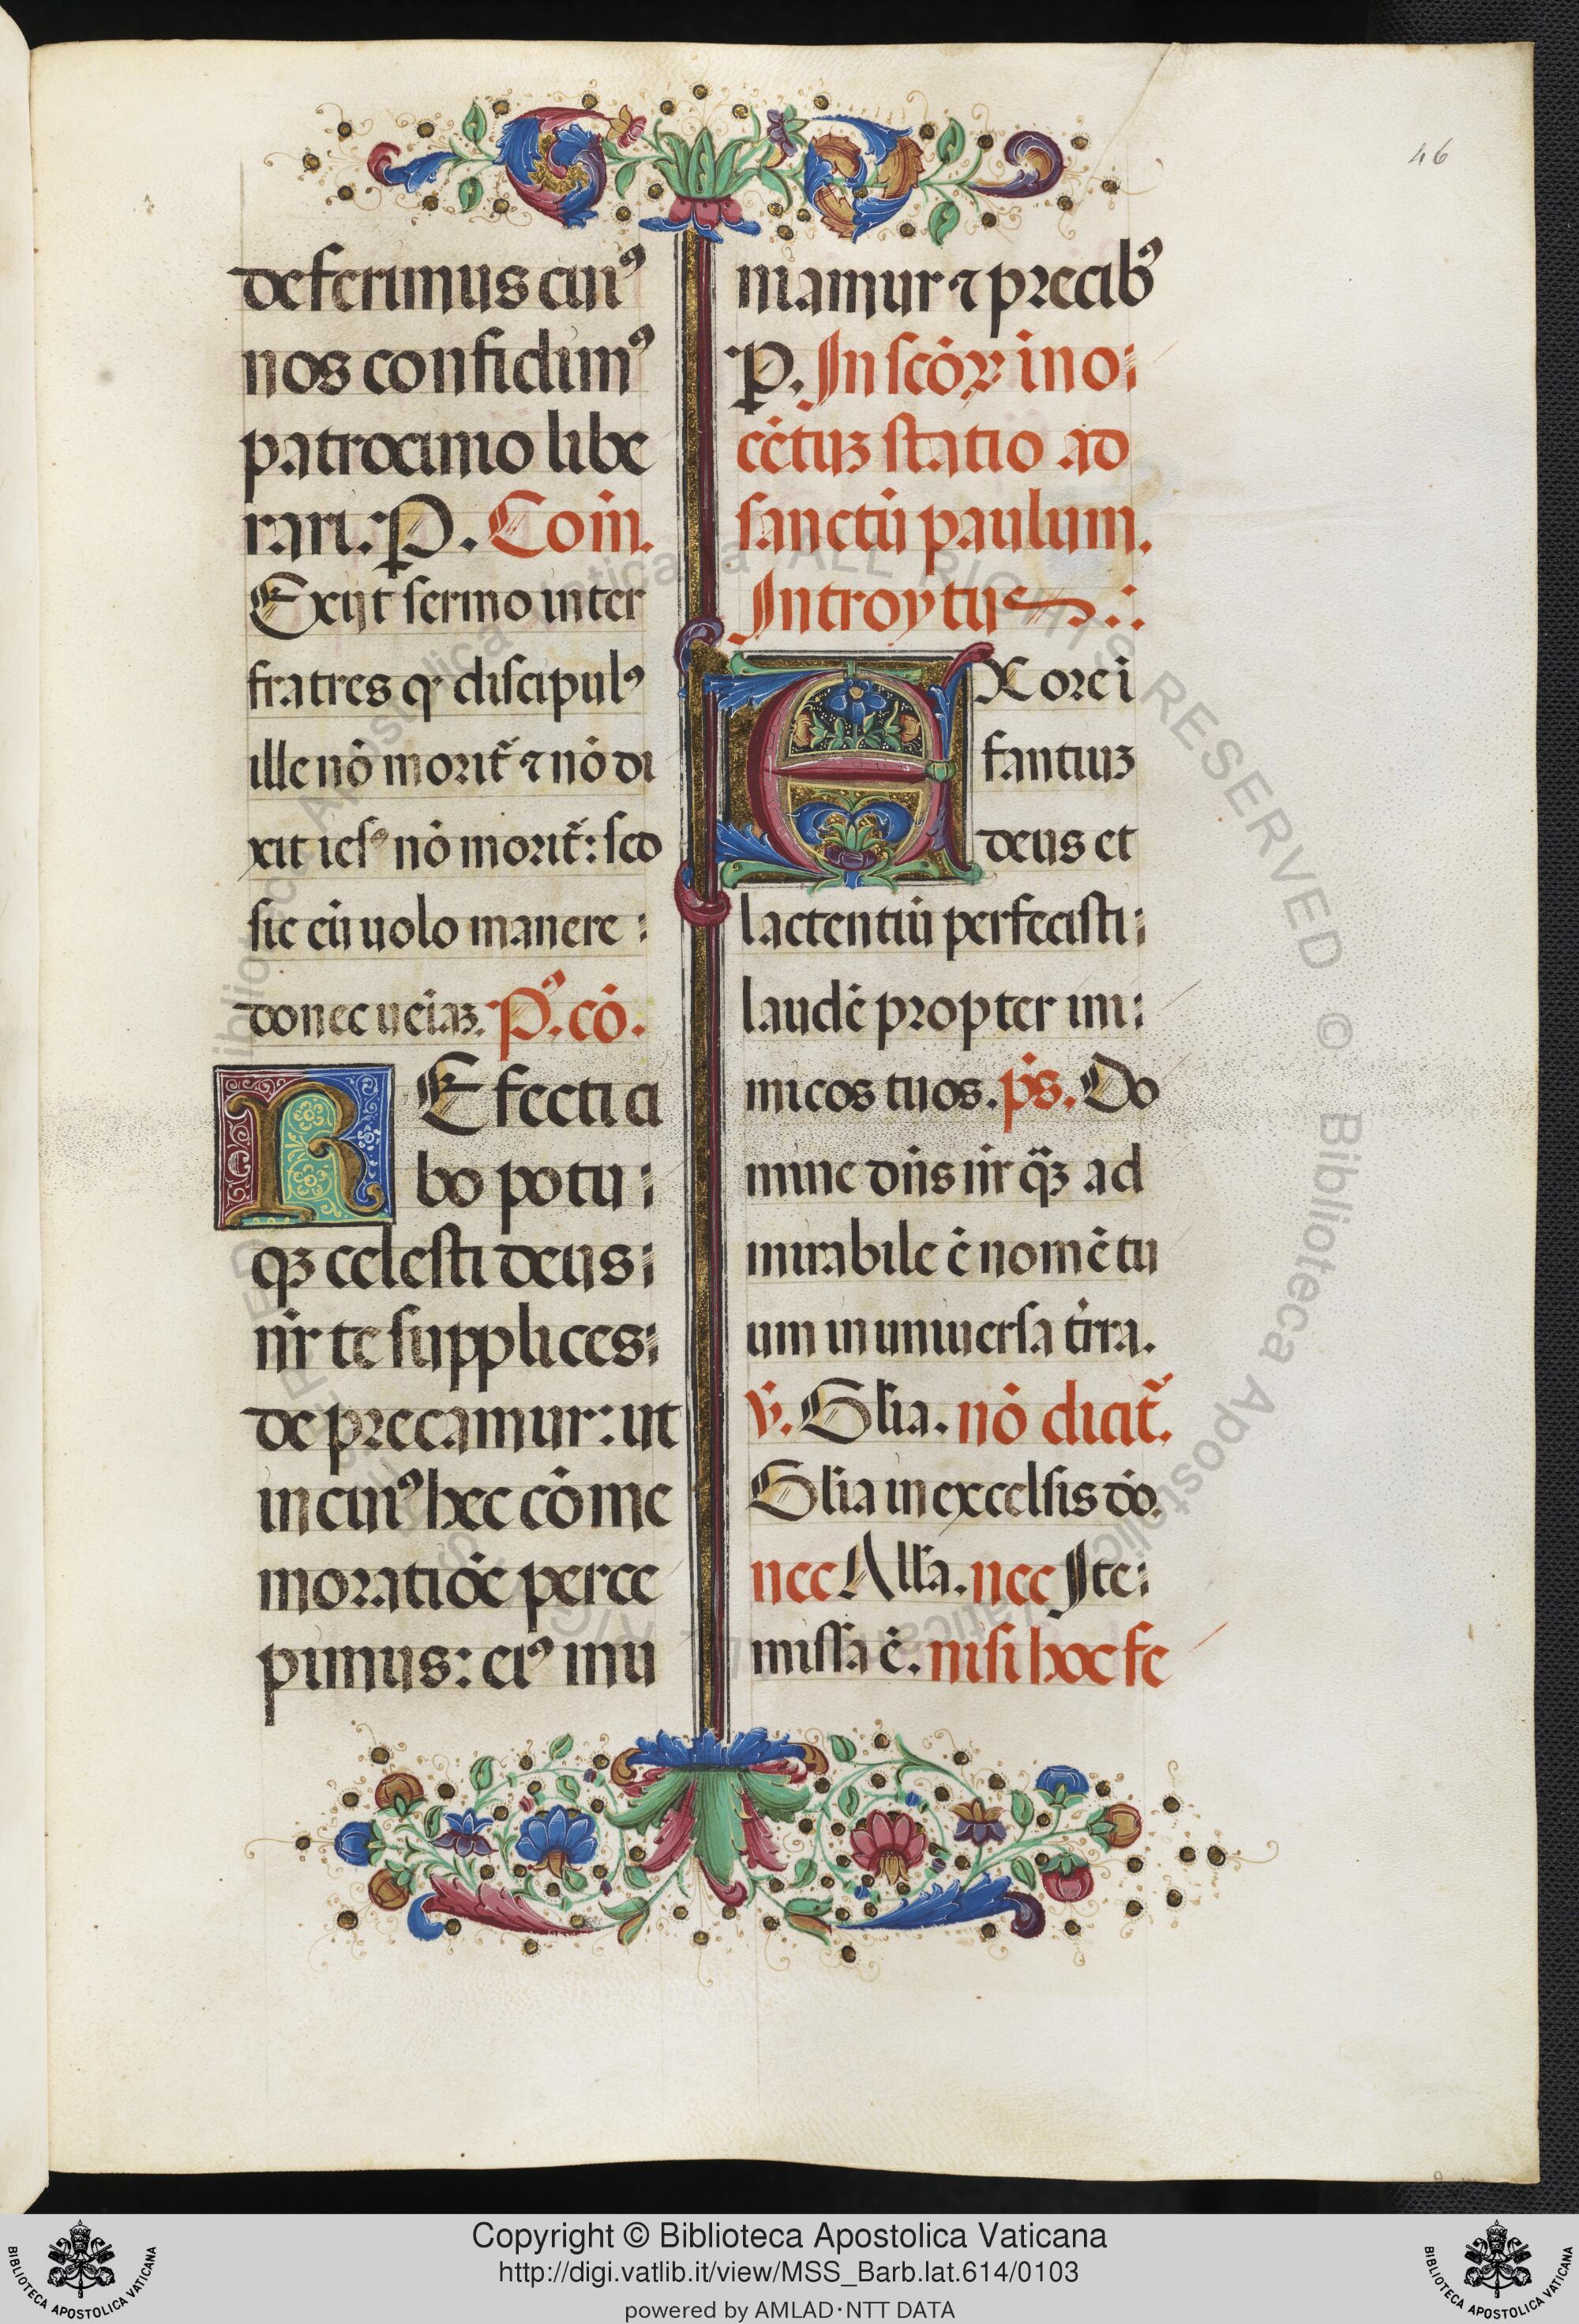 46
deferimus cuiꝰ
nos confidimꝰ
patrocinio libe
rari. P. Com̄.
Exijt sermo inter
fratres ꝙ discipulꝰ
ille nō morit᷑ ⁊ nō di
xit iesꝰ nō morit᷑: sed
sic eū uolo manere
donec ueiāꝫ. Pꝰ. cō.
REfecti ci
bo potu
qꝫ celesti deus
nr̄ te supplices
deprecamur: ut
in cuiꝰ hec cōme
moratiōe perce
pimus: eiꝰ mu
niamur ⁊ precibꝰ
P. In scōꝝ ino
cētuꝫ statio ad
sanctū paulum.
Introytus.
EX ore i
fantiuꝫ
deus et
lactentiū perfecisti
laudē propter ini
micos tuos. ps. Do
mine dn̄s nr̄ qꝫ̄ ad
mirabile ē nomē tu
um in uniuersa t̄rra.
v̄. Gl̄ia. nō dicit᷑.
Gl̄ia in excelsis dō.
nec All̄a. nec Ite
missa ē. nisi hoc fe
Biblioteca Apostolica Vaticana - ALL RIGHTS RESERVED © Biblioteca Apostolica Vaticana - ALL RIGHTS RESERVED ©
Copyright © Biblioteca Apostolica Vaticana
http://digi.vatlib.it/view/MSS_Barb.lat.614/0103
powered by AMLAD·NTT DATA
BIBLIOTECA APOSTOLICA VATICANA
BIBLIOTECA APOSTOLICA VATICANA